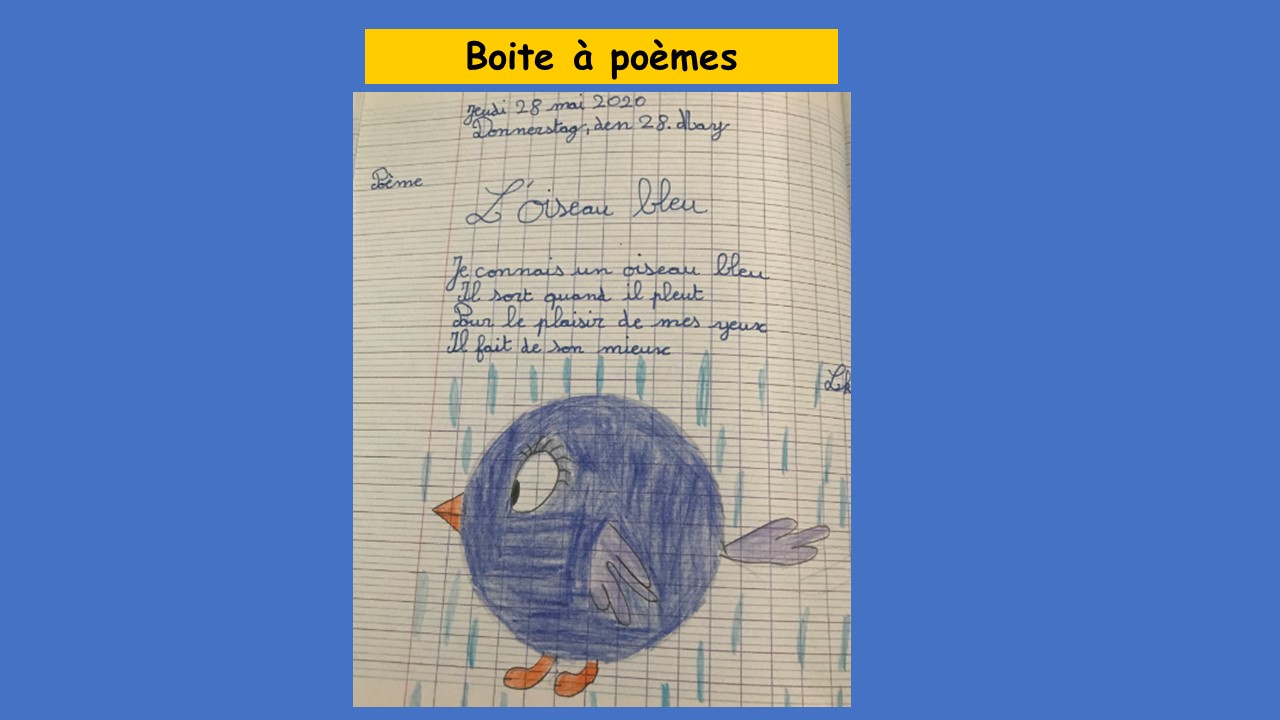 Boite à poèmes
Jeudi 28 mai 2020
Donnerstag, den 28. May
Poème
L'oiseau bleu
Je connais un oiseau bleu
Il sort quand il pleut
Pour le plaisir de mes yeux
Il fait de son mieux